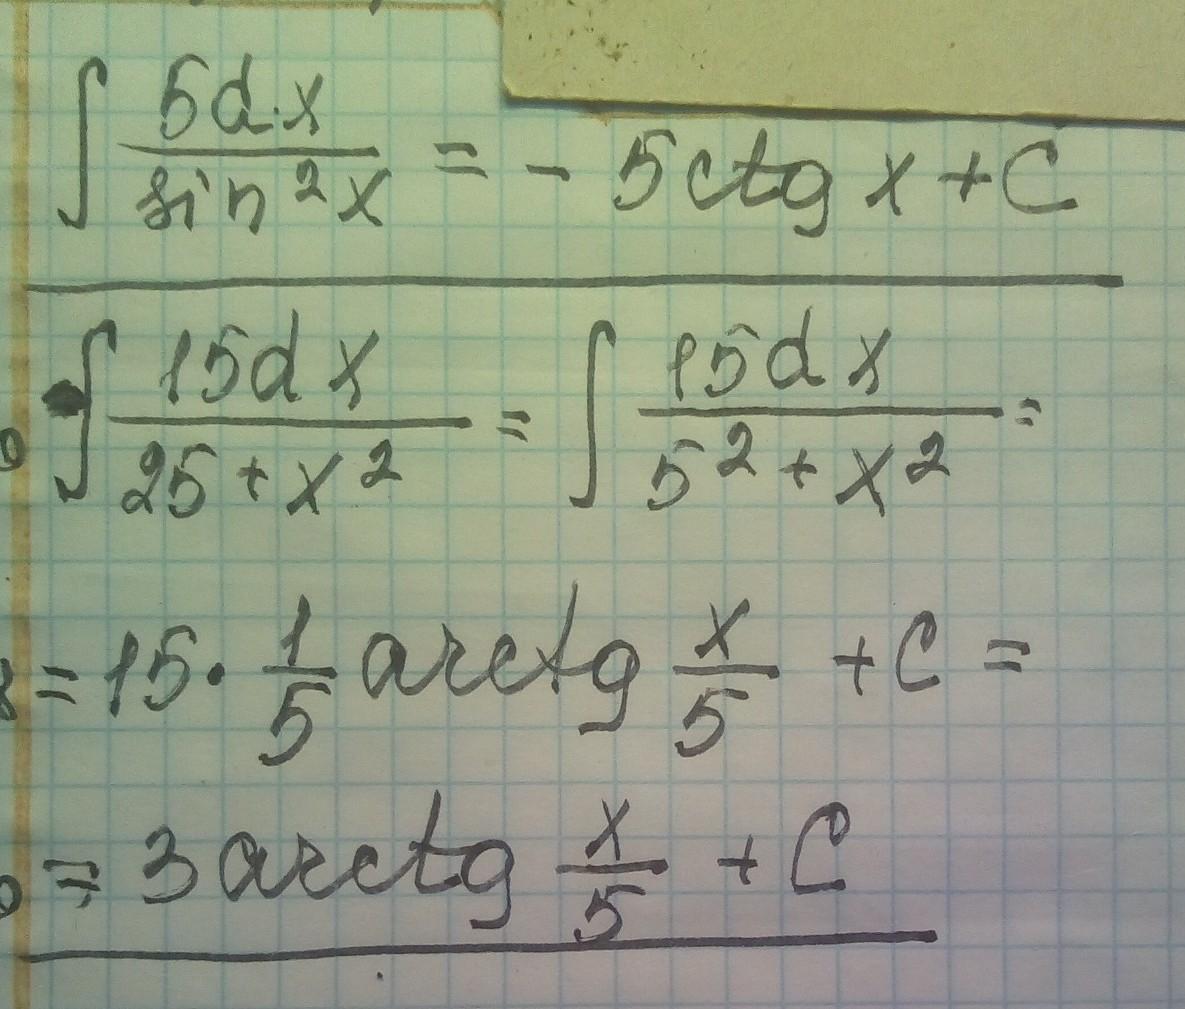 ∫ 5dx/sin²x = - 5ctg x + C
∫ 15dx/25 + x² = ∫ 15dx/5² + x² =
= 15 · 1/5 arctg x/5 + C =
= 3 arctg x/5 + C